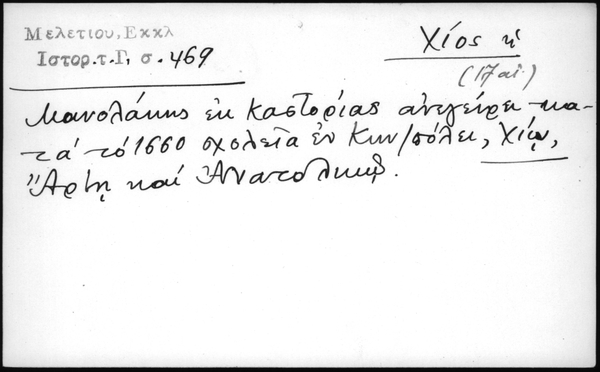 Μελετίου, Εκκλ
Ιστορ.τ.Γ, σ. 469
Χίος κ
(17 αἰ.)
Μανολάκης ἐκ Καστορίας ἀνεγείρει κα-
τά τό 1660 σχολεῖα ἐν Κων/πόλει, Χίῳ,
Ἄρτῃ καί Ἀνατολικῷ.